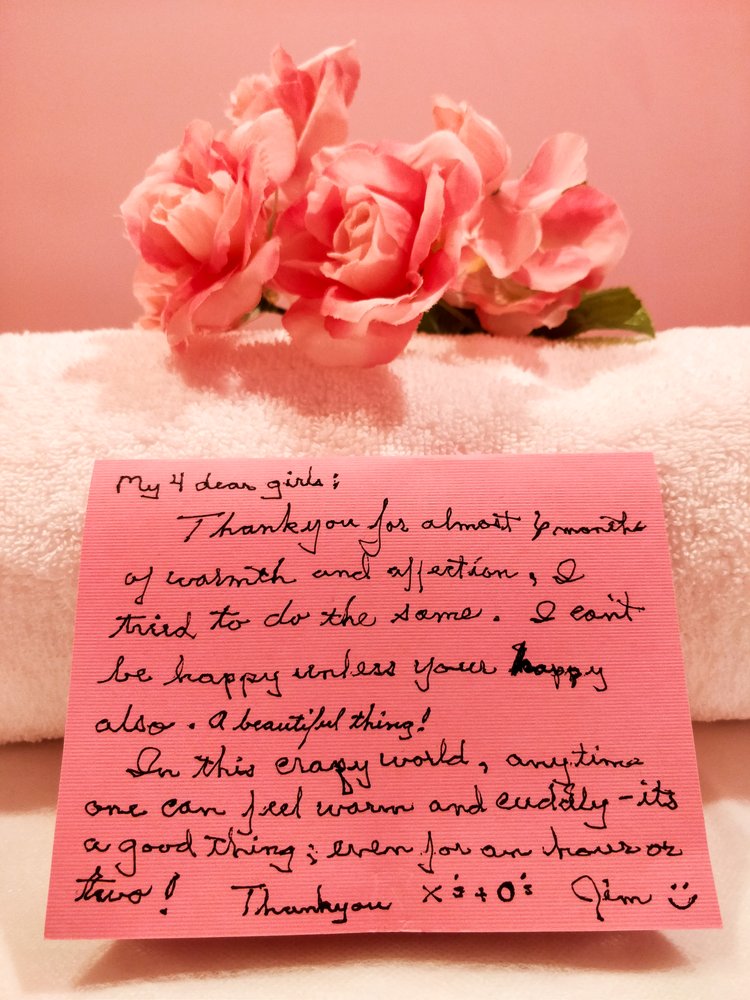 My 4 dear girls:
Thankyou for almost 6 months
of warmth and affection, I
tried to do the same. I can't
be happy unless your happy
also. A beautiful thing!
In this crazy world, anytime
one can feel warm and cuddly - its
a good thing; even for an hour or
two! Thankyou X's + O's Jim